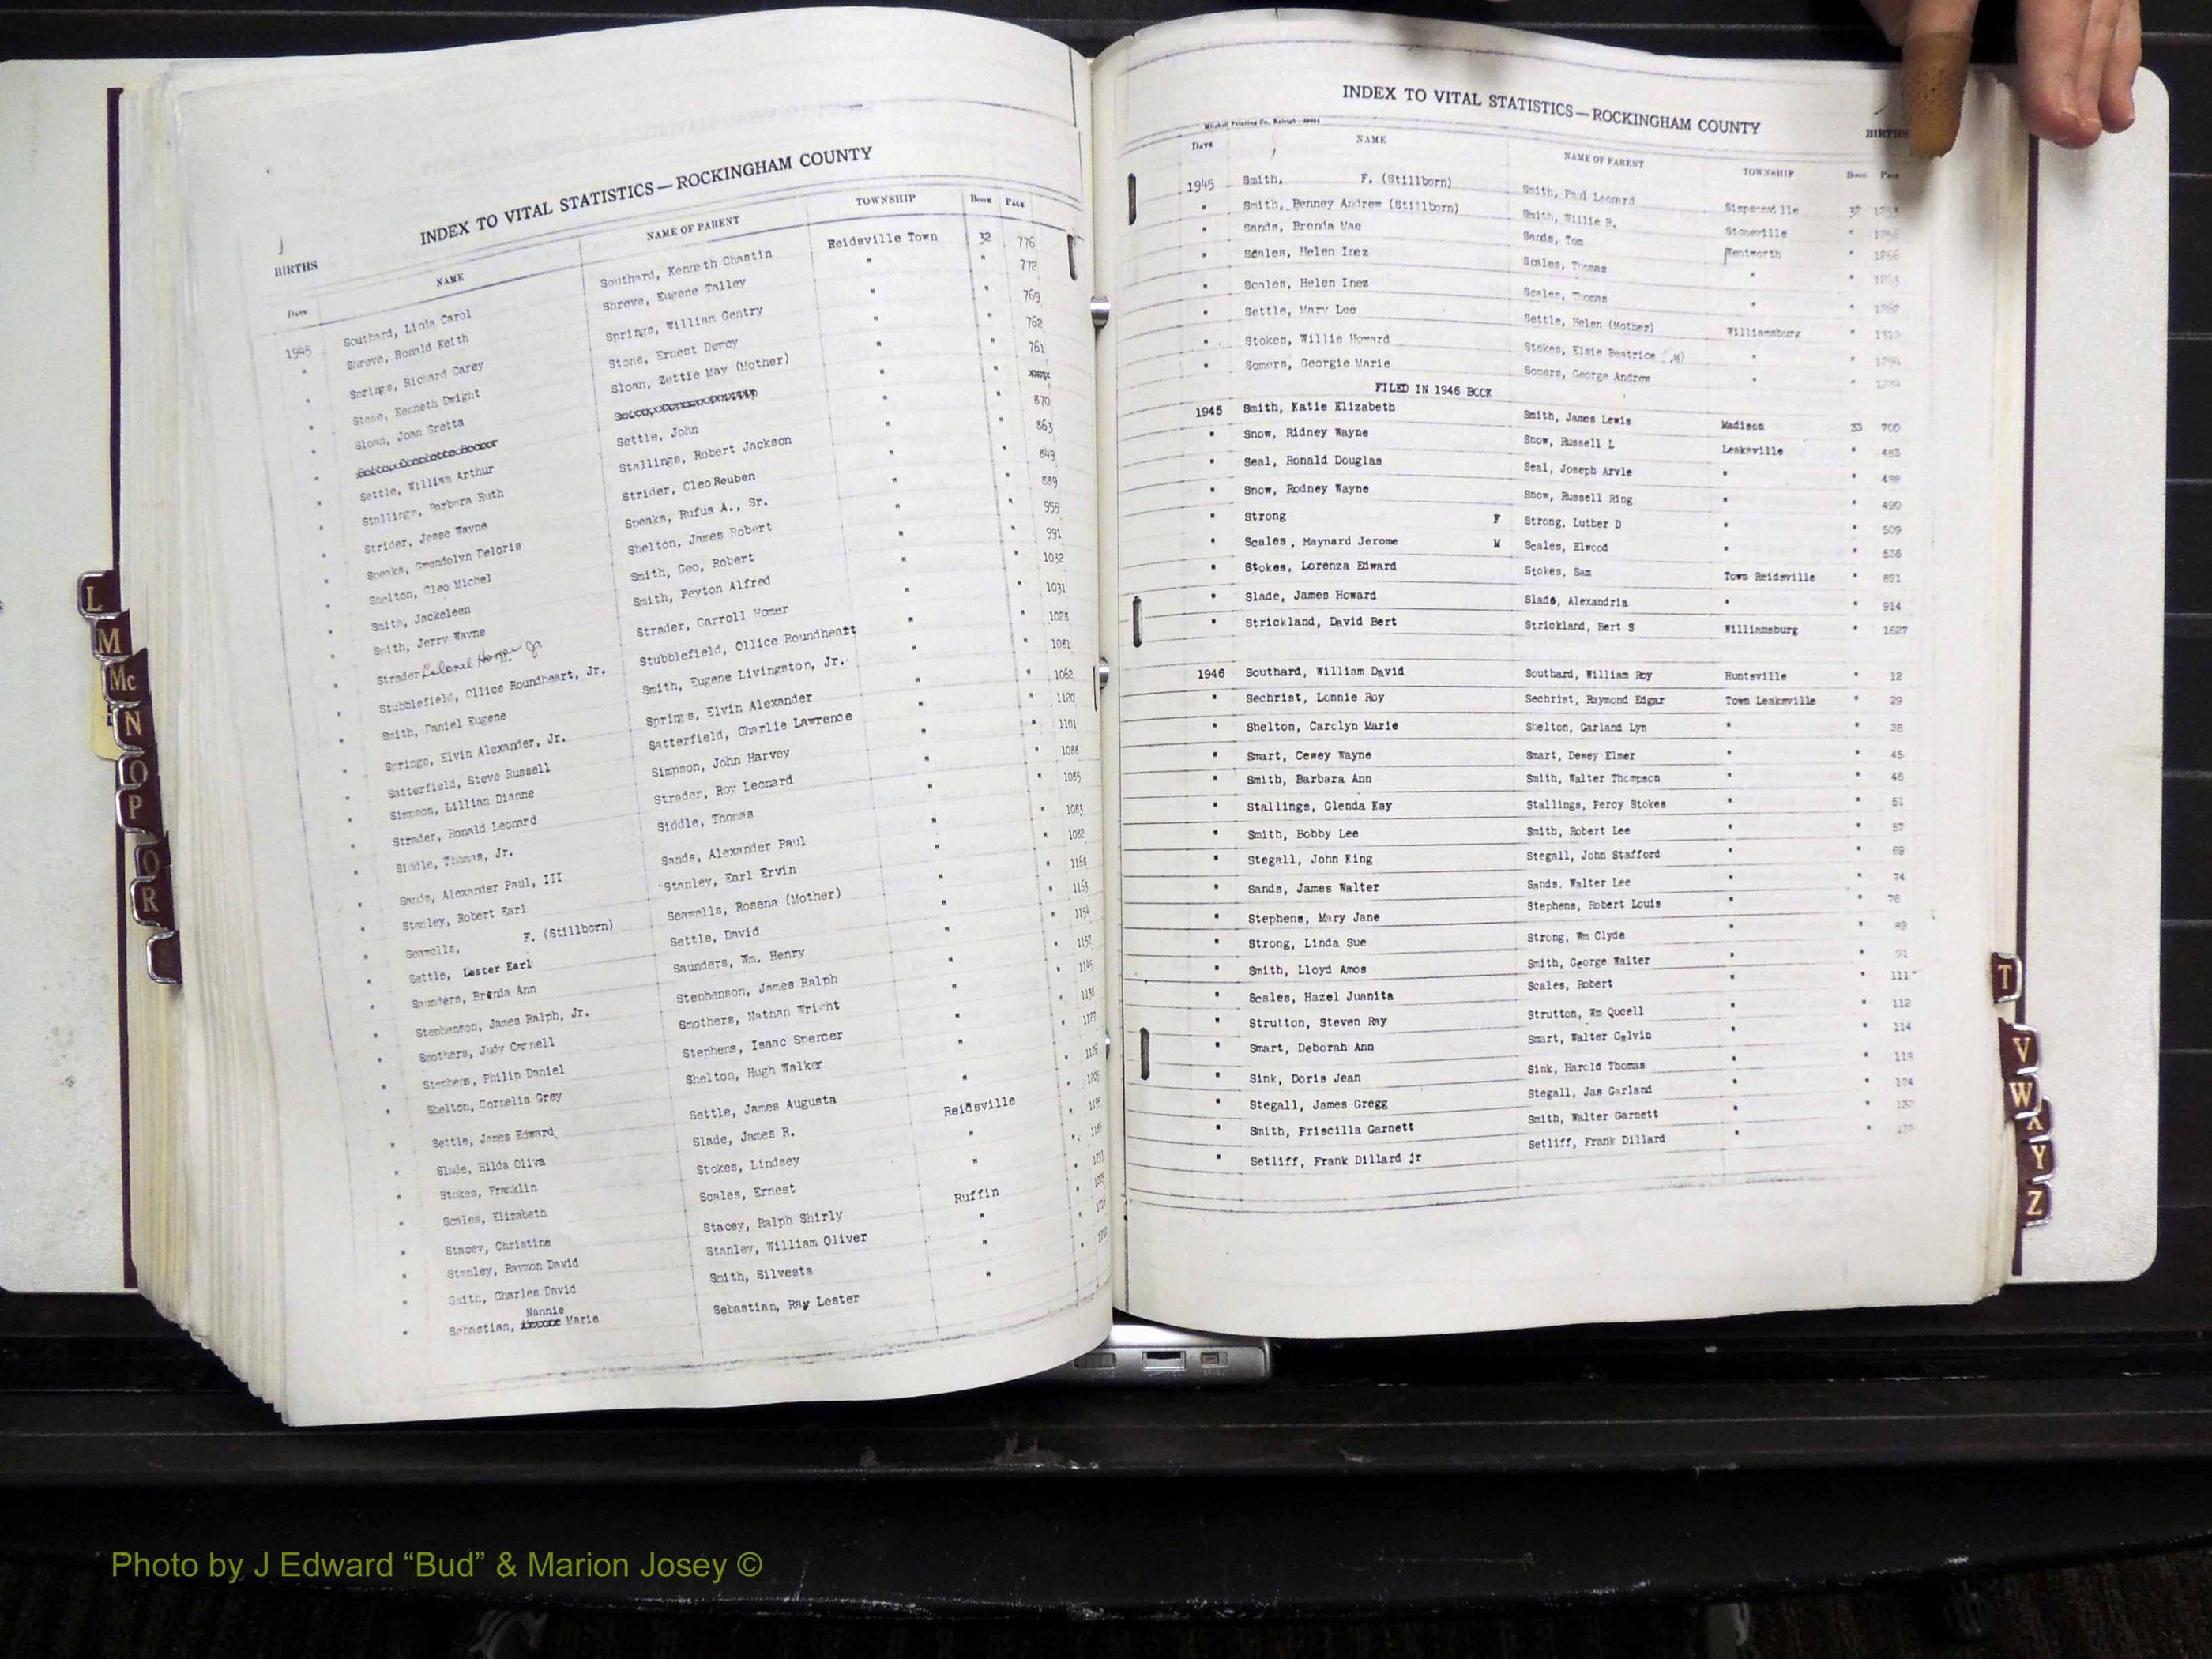 INDEX TO VITAL STATISTICS — ROCKINGHAM COUNTY
BIRTHS
Date NAME NAME OF PARENT TOWNSHIP Book Page
1945 Southard, Linda Carol Southard, Kenneth Chastin Reidsville Town 32 776
" Shreve, Ronald Keith Shreve, Eugene Talley " " 772
" Springs, Richard Carey Springs, William Gentry " " 769
" Stone, Kenneth Dwight Stone, Ernest Dewey " " 762
" Sloan, Joan Gretta Sloan, Zettie May (Mother) " " 761
" Settle, William Arthur Settle, John " " 870
" Stallings, Barbara Ruth Stallings, Robert Jackson " " 863
" Strider, Jesse Wayne Strider, Cleo Reuben " " 849
" Speaks, Gwendolyn Deloris Speaks, Rufus A., Sr. " " 889
" Shelton, Cleo Michel Shelton, James Robert " " 955
" Smith, Jackeleen Smith, Geo, Robert " " 991
" Smith, Jerry Wayne Smith, Peyton Alfred " " 1032
" Strader Jr Strader, Carroll Homer " " 1031
" Stubblefield, Ollice Roundheart, Jr. Stubblefield, Ollice Roundheart " " 1028
" Smith, Daniel Eugene Smith, Eugene Livingston, Jr. " " 1081
" Springs, Elvin Alexander, Jr. Springs, Elvin Alexander " " 1062
" Satterfield, Steve Russell Satterfield, Charlie Lawrence " " 1120
" Simpson, Lillian Dianne Simpson, John Harvey " " 1101
" Strader, Ronald Leonard Strader, Roy Leonard " "
" Siddle, Thomas, Jr. Siddle, Thomas " " 1085
" Sands, Alexander Paul, III Sands, Alexander Paul " " 1083
" Stanley, Robert Earl Stanley, Earl Ervin " " 1082
" Seawells, F. (Stillborn) Seawells, Rosena (Mother) " "
" Settle, Lester Earl Settle, David " " 1163
" Saunders, Brenda Ann Saunders, Wm. Henry " " 1154
" Stephenson, James Ralph, Jr. Stephenson, James Ralph " "
" Smothers, Judy Carnell Smothers, Nathan Wright " "
" Stephens, Philip Daniel Stephens, Isaac Spencer " "
" Shelton, Cornelia Grey Shelton, Hugh Walker " "
" Settle, James Edward Settle, James Augusta " "
" Slade, Hilda Oliva Slade, James R. Reidsville "
" Stokes, Franklin Stokes, Lindsey " "
" Scales, Elizabeth Scales, Ernest " "
" Stacey, Christine Stacey, Ralph Shirly Ruffin "
" Stanley, Raymon David Stanley, William Oliver " "
" Smith, Charles David Smith, Silvesta " "
Nannie
" Sebastian, Marie Sebastian, Ray Lester "
INDEX TO VITAL STATISTICS — ROCKINGHAM COUNTY
Mitchell Printing Co., Raleigh
BIRTHS
Date NAME NAME OF PARENT TOWNSHIP Book Page
1945 Smith, F. (Stillborn) Smith, Paul Leonard Simpsonville 32
" Smith, Benney Andrew (Stillborn) Smith, Willie R. Stoneville "
" Sands, Brenda Mae Sands, Tom Wentworth " 1266
" Scales, Helen Inez Scales, Thomas "
" Scales, Helen Inez Scales, Thomas "
" Settle, Mary Lee Settle, Helen (Mother) Williamsburg "
" Stokes, Willie Howard Stokes, Elsie Beatrice (M) " "
" Somers, Georgie Marie Somers, George Andrew " "
FILED IN 1946 BOOK
1945 Smith, Katie Elizabeth Smith, James Lewis Madison 33 700
" Snow, Ridney Wayne Snow, Russell L Leaksville " 483
" Seal, Ronald Douglas Seal, Joseph Arvle " " 488
" Snow, Rodney Wayne Snow, Russell Ring " " 490
" Strong F Strong, Luther D " " 509
" Scales, Maynard Jerome M Scales, Elwood " " 536
" Stokes, Lorenza Edward Stokes, Sam Town Reidsville " 891
" Slade, James Howard Slade, Alexandria " " 914
" Strickland, David Bert Strickland, Bert S Williamsburg " 1627
1946 Southard, William David Southard, William Roy Huntsville " 12
" Sechrist, Lonnie Roy Sechrist, Raymond Edgar Town Leaksville " 29
" Shelton, Carolyn Marie Shelton, Garland Lyn " " 38
" Smart, Cewey Wayne Smart, Dewey Elmer " " 45
" Smith, Barbara Ann Smith, Walter Thompson " " 46
" Stallings, Glenda Kay Stallings, Percy Stokes " " 51
" Smith, Bobby Lee Smith, Robert Lee " " 57
" Stegall, John King Stegall, John Stafford " " 69
" Sands, James Walter Sands, Walter Lee " " 74
" Stephens, Mary Jane Stephens, Robert Louis " " 76
" Strong, Linda Sue Strong, Wm Clyde " " 89
" Smith, Lloyd Amos Smith, George Walter " " 91
" Scales, Hazel Juanita Scales, Robert " " 111
" Strutton, Steven Ray Strutton, Wm Qucell " " 112
" Smart, Deborah Ann Smart, Walter Calvin " " 114
" Sink, Doris Jean Sink, Harold Thomas " "
" Stegall, James Gregg Stegall, Jas Garland " "
" Smith, Priscilla Garnett Smith, Walter Garnett " "
" Setliff, Frank Dillard jr Setliff, Frank Dillard " "
L
M
Mc
N
O
P
R
T
V
W
X
Y
Z
Photo by J Edward “Bud” & Marion Josey ©